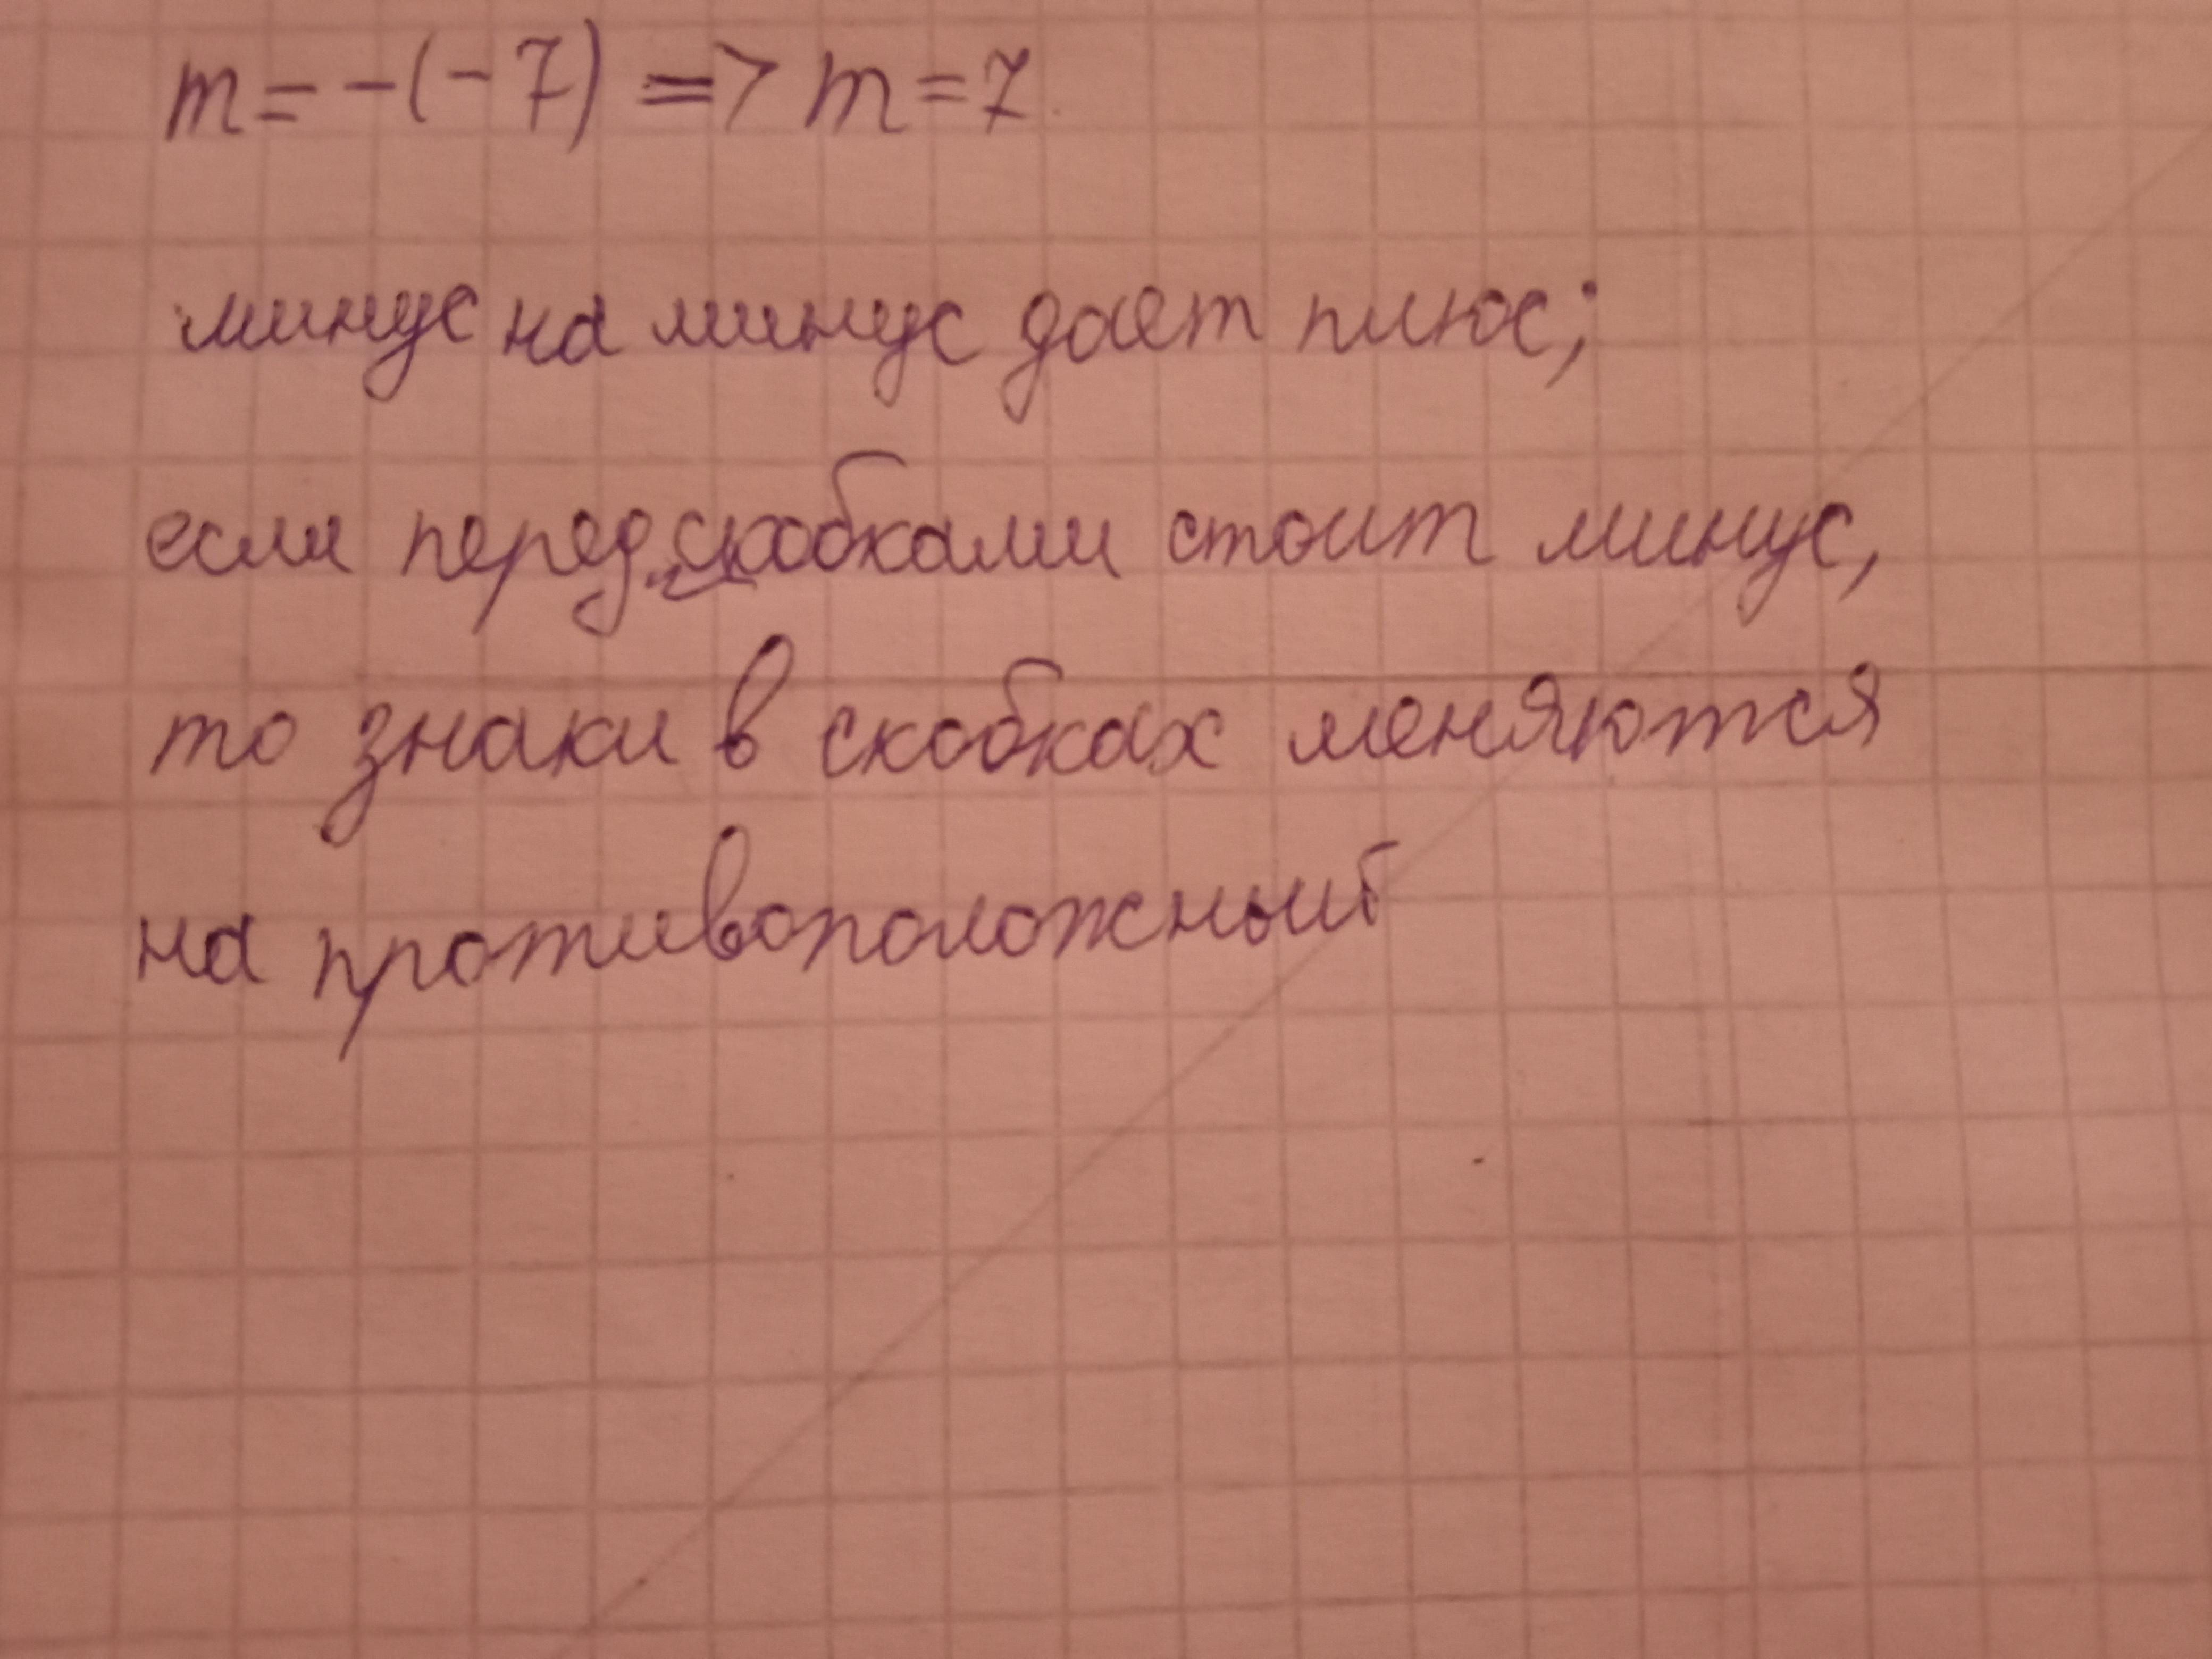 m = -(-7) => m = 7
минус на минус дает плюс;
если перед скобками стоит минус,
то знаки в скобках меняются
на противоположный